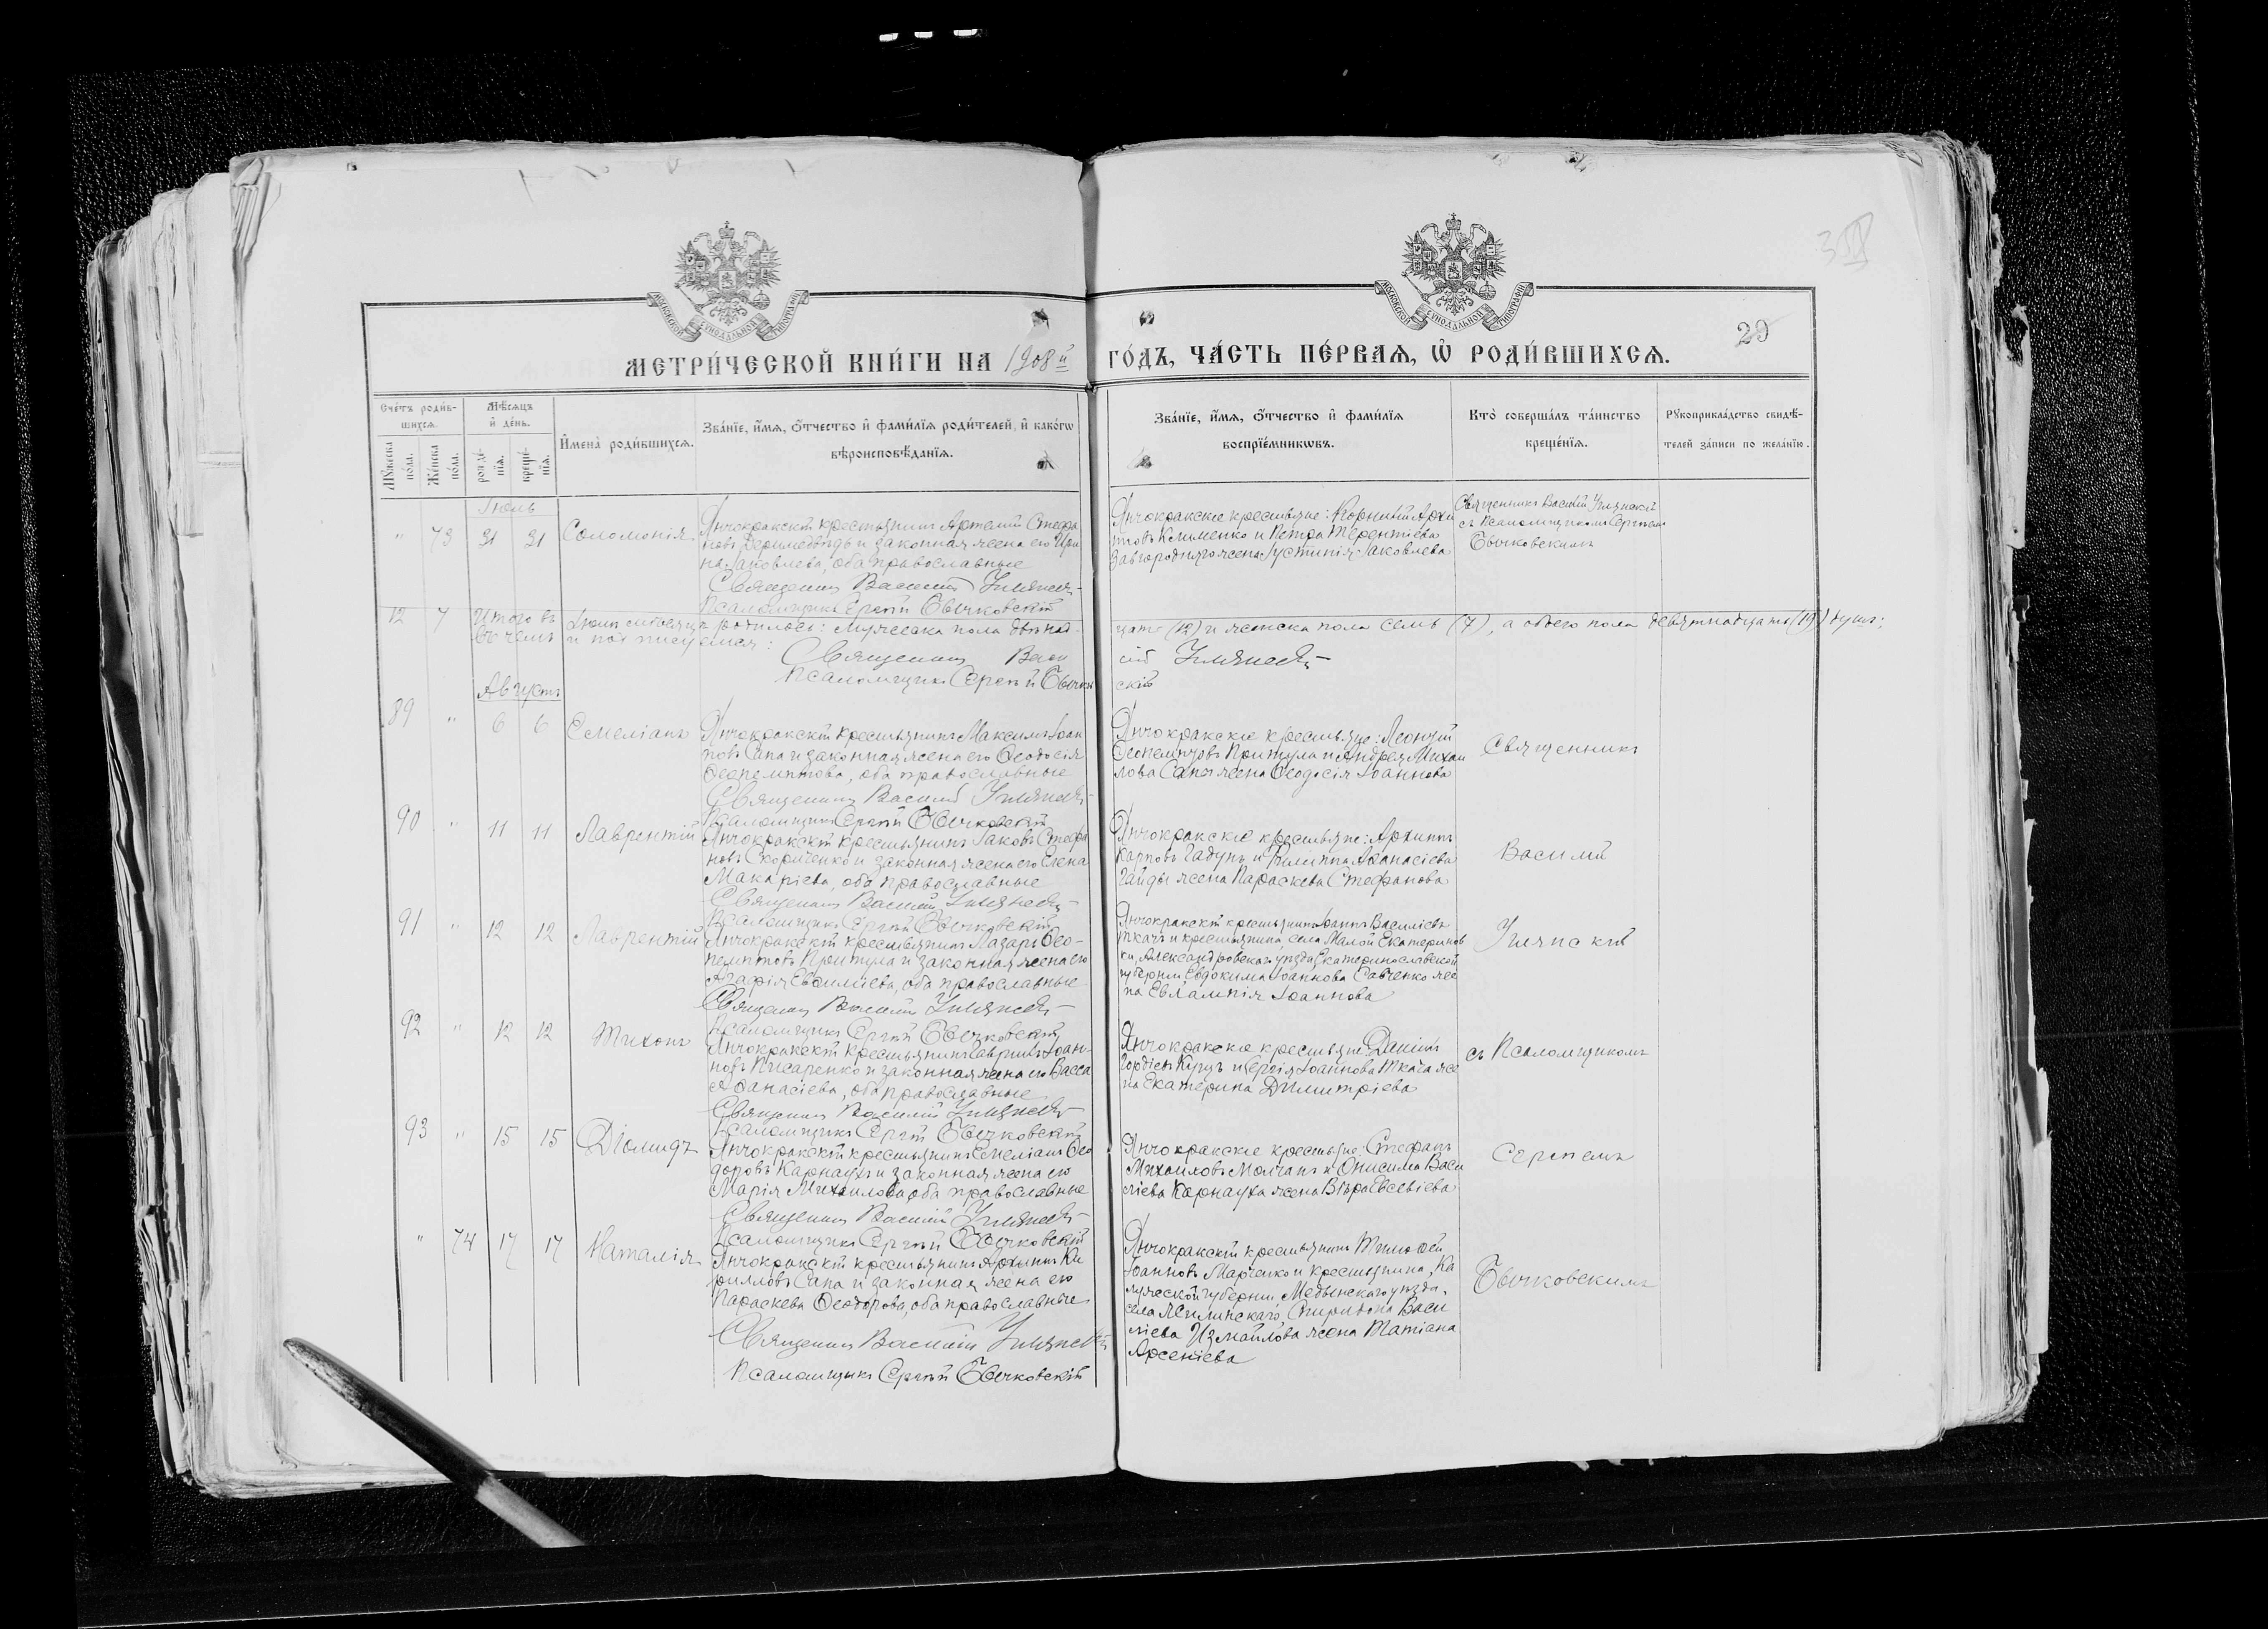 МОСКОВСКОЙ СѴНОДАЛЬНОЙ ТИПОГРАФІИ
МОСКОВСКОЙ СѴНОДАЛЬНОЙ ТИПОГРАФІИ
29
МЕТРИ́ЧЕСКОЙ КНИ́ГИ НА 1908 й ГО́ДЪ, ЧА́СТЬ ПЕ́РВАЯ, Ѡ҆ РОДИ́ВШИХСЯ.
Сче́тъ роди́в-
шихся.
Мѣ́сяцъ
и҆ де́нь.
Мꙋ́жеска
по́ла.
Же́нска
по́ла.
рожде́-
нїя.
креще́-
нїя.
И҆мена̀ роди́вшихся.
Зва́нїе, и҆́мя, ѻ҆́тчество и҆ фами́лїя роди́телей, и҆ како́гѡ
вѣроисповѣ́данїя.
Зва́нїе, и҆́мя, ѻ҆́тчество и҆ фами́лїя
воспрїе́мникѡвъ.
Кто̀ соверша́лъ та́инство
креще́нїя.
Рꙋкоприкла́дство свидѣ́-
телей за́писи по жела́нїю.
Іюль
" 73 31 31 Соломонія
Янчокракскій крестьянинъ Артемій Стефа
новъ и законная жена его Ири
на Яковлева, оба православные
Священникъ Василій
Псаломщикъ Сергѣй Бычковскій
Янчокракскіе крестьяне: Корнилій Архи
повъ Клименко и Петра Терентіева
Завгородняго жена Іустинія Іаковлева
Священникъ Василій
съ Псаломщикомъ Сергѣемъ
Бычковскимъ
12 7 Итого въ Іюлѣ мѣсяцѣ родилось: мужеска пола двѣнад-
цать (12) и женска пола семь (7), а обоего пола девятнадцать (19) душъ;
въ чемъ и подписуемся:
Священникъ Васи
лій
Псаломщикъ Сергѣй Бычков
скій
Августъ
89 " 6 6 Емеліанъ
Янчокракскій крестьянинъ Максимъ Іоан
новъ Сапа и законная жена его Ѳеодосія
Ѳеопемптова, оба православные
Священникъ Василій
Псаломщикъ Сергѣй Бычковскій
Янчокракскіе крестьяне: Леонтій
Ѳеопемптовъ Притула и Андрея Михаи
лова Сапы жена Ѳеодосія Іоаннова
Священникъ
90 " 11 11 Лаврентій
Янчокракскій крестьянинъ Іаковъ Стефа
новъ Скориченко и законная жена его Елена
Макаріева, оба православные
Священникъ Василій
Псаломщикъ Сергѣй Бычковскій
Янчокракскіе крестьяне: Архипъ
Карповъ Гадунъ и Филиппа Аѳанасіева
Гайды жена Параскева Стефанова
Василій
91 " 12 12 Лаврентій
Янчокракскій крестьянинъ Лазарь Ѳео-
пемптовъ Притула и законная жена его
Агафія Евѳиміева, оба православные
Священникъ Василій
Псаломщикъ Сергѣй Бычковскій
Янчокракскій крестьянинъ Іоаннъ Василіевъ
Ткачъ и крестьянина, села Малой Екатеринов
ки, Александровскаго уѣзда, Екатеринославской
губерніи Евдокима Іоаннова Савченко же
на Евлампія Іоаннова
92 " 12 12 Тихонъ
Янчокракскій крестьянинъ Гавріилъ Іоан-
новъ Писаренко и законная жена его Васса
Аѳанасіева, оба православные
Священникъ Василій
Псаломщикъ Сергѣй Бычковскій
Янчокракскіе крестьяне: Даніилъ
Гордіевъ Куцъ и Сергія Іоаннова Ткача же
на Екатерина Димитріева
съ Псаломщикомъ
93 " 15 15 Діомидъ
Янчокракскій крестьянинъ Емеліанъ Ѳео
доровъ Карнаухъ и законная жена его
Марія Михаилова, оба православные
Священникъ Василій
Псаломщикъ Сергѣй Бычковскій
Янчокракскіе крестьяне: Стефанъ
Михаиловъ Молчанъ и Онисима Васи
ліева Карнауха жена Вѣра Евсевіева
Сергѣемъ
" 74 17 17 Наталія
Янчокракскій крестьянинъ Архипъ Ки
рилловъ Сапа и законная жена его
Параскева Ѳеодорова, оба православные
Священникъ Василій
Псаломщикъ Сергѣй Бычковскій
Янчокракскій крестьянинъ Тимоѳей
Іоанновъ Марченко и крестьянина, Ка
лужской губерніи, Медынскаго уѣзда,
села Спиридона Васи
ліева Измайлова жена Татіана
Арсеніева
Бычковскимъ